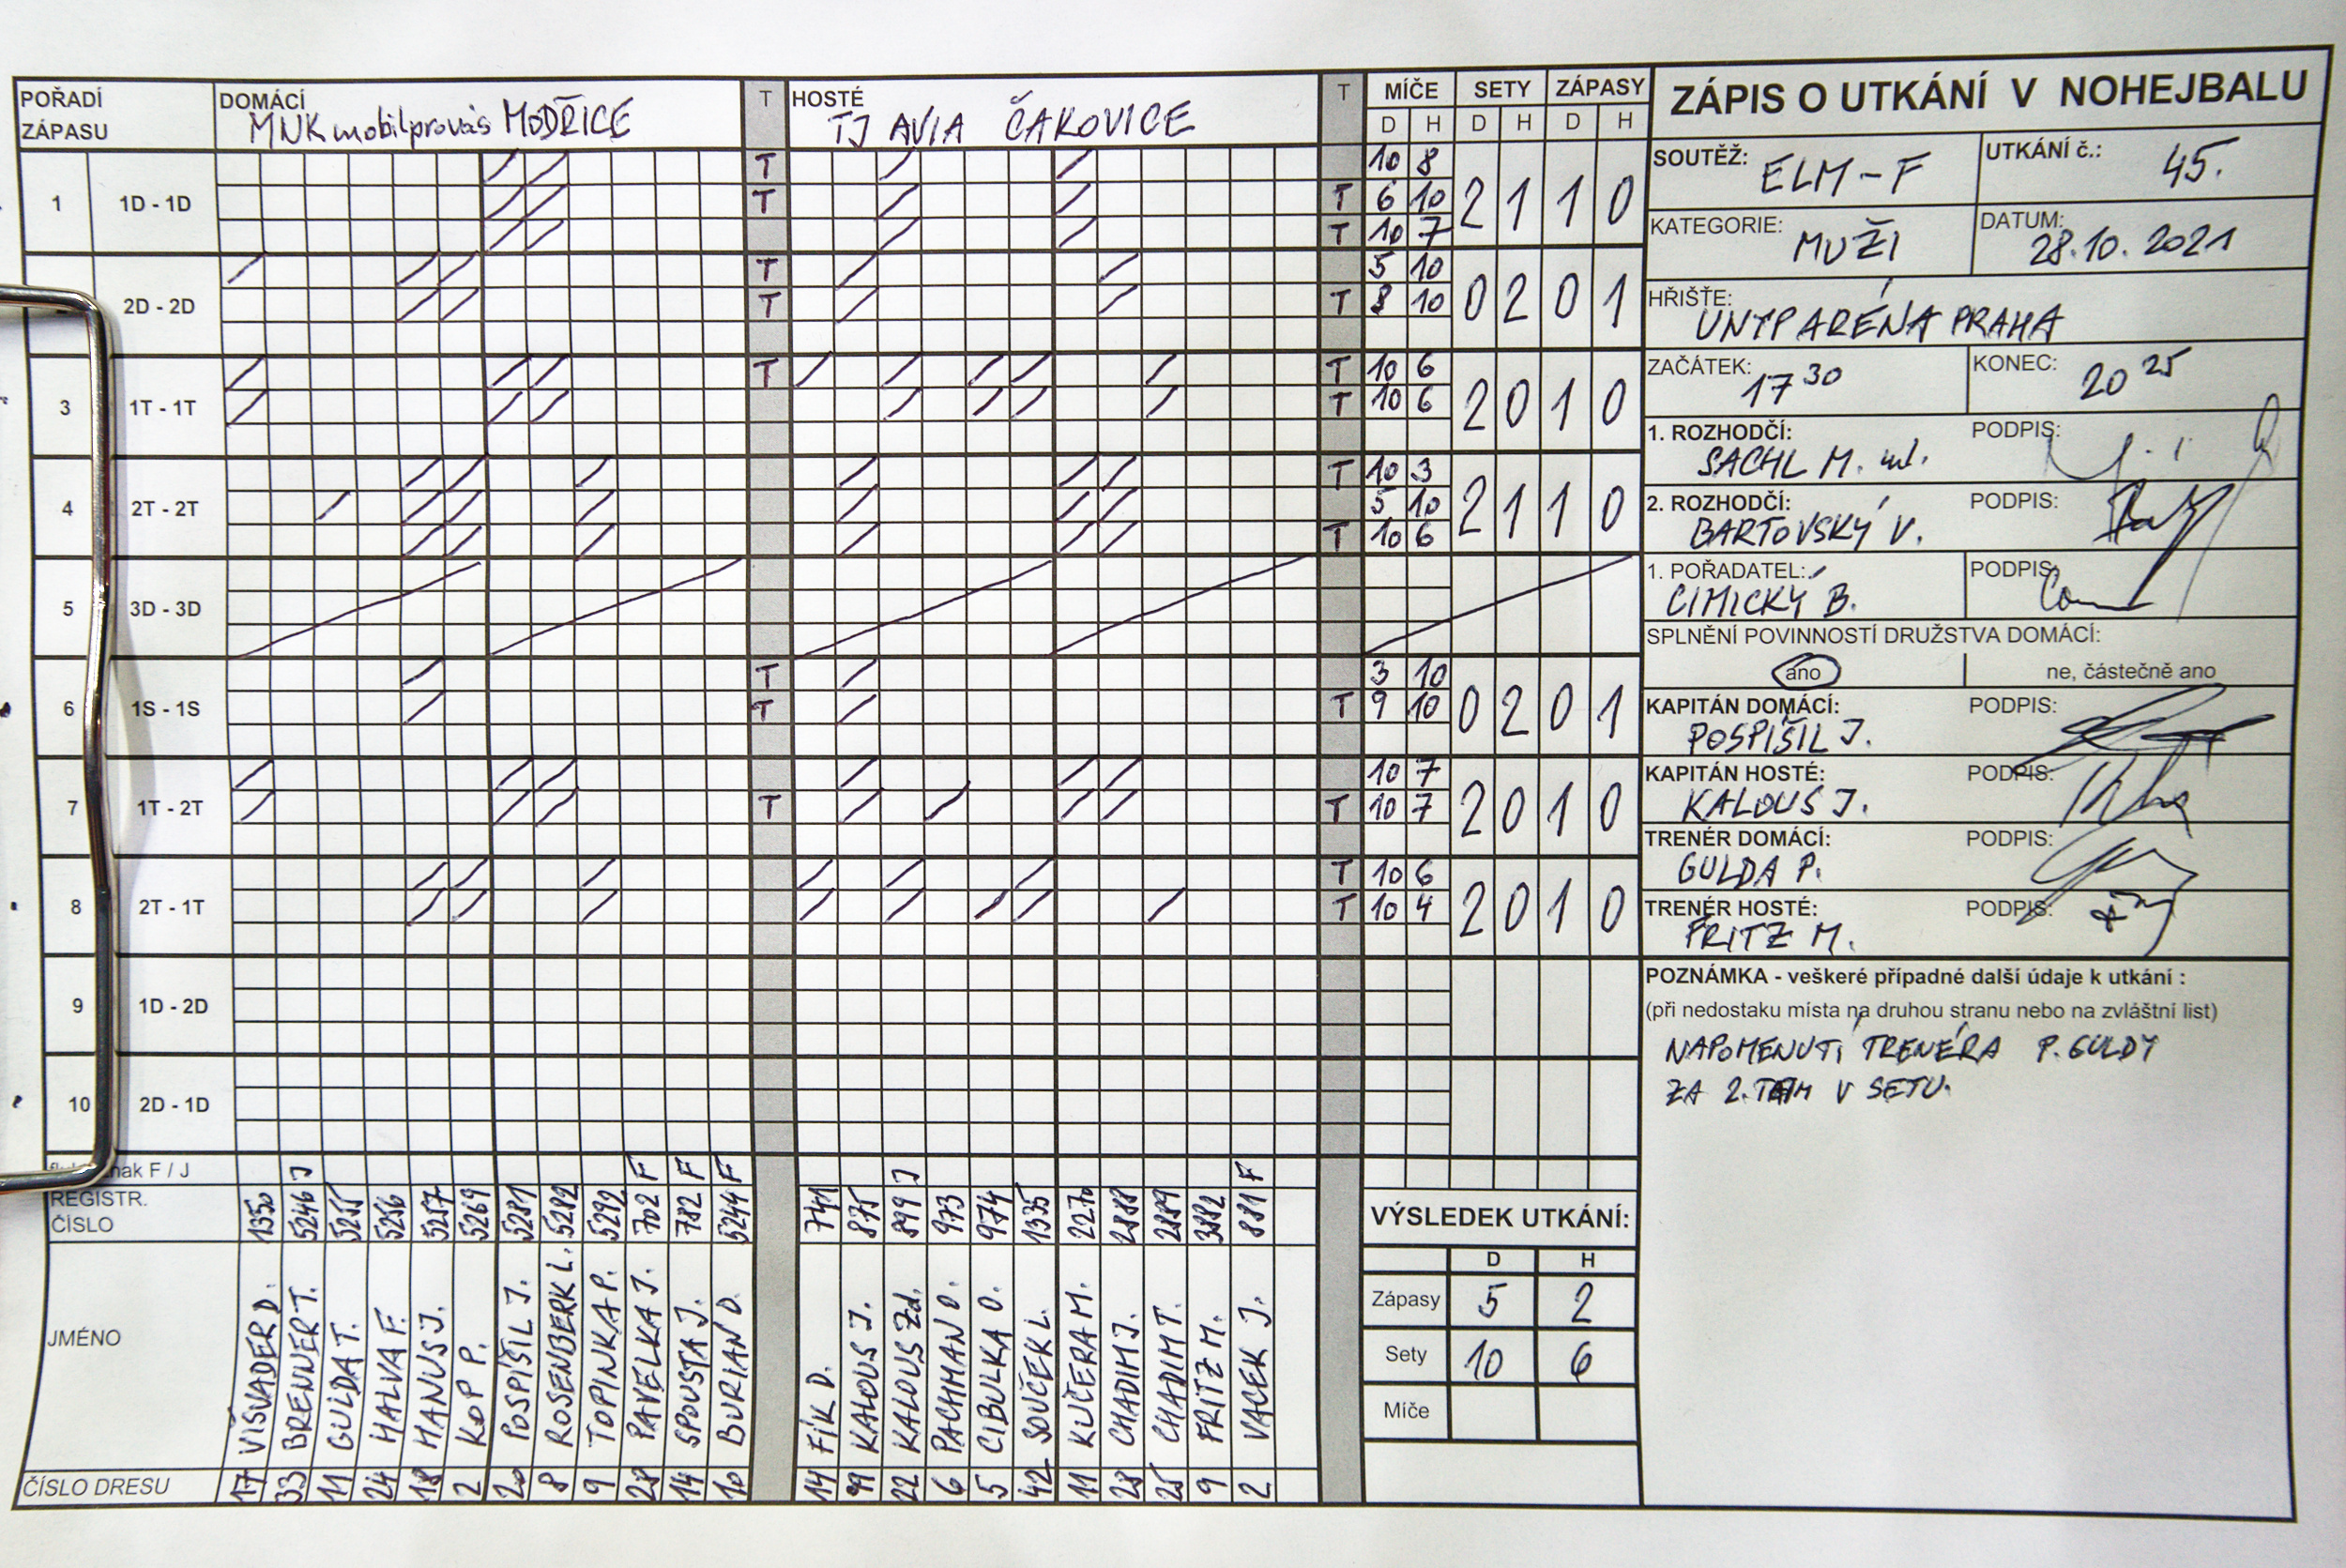 POŘADÍ ZÁPASU DOMÁCÍ MNK mobilprovás MODŘICE T HOSTÉ TJ AVIA ČAKOVICE T MÍČE SETY ZÁPASY
D H D H D H
1 1D - 1D T 10 8 2 1 1 0
T T 6 10
T 10 7
2D - 2D T 5 10 0 2 0 1
T T 8 10
3 1T - 1T T T 10 6 2 0 1 0
T 10 6
4 2T - 2T T 10 3 2 1 1 0
5 10
T 10 6
5 3D - 3D
6 1S - 1S T 3 10 0 2 0 1
T T 9 10
7 1T - 2T 10 7 2 0 1 0
T T 10 7
8 2T - 1T T 10 6 2 0 1 0
T 10 4
9 1D - 2D
10 2D - 1D
nak F / J J F F F J F
REGISTR. ČÍSLO 1350 5246 5255 5256 5257 5269 5281 5282 5292 702 782 5244 741 875 899 973 974 1335 2270 2888 2889 3882 881
JMÉNO VIŠVADER D. BRENNER T. GULDA T. HALVA F. HANUS J. KOP P. POSPÍŠIL J. ROSENBERK L. TOPINKA P. PAVELKA J. SPOUSTA J. BURIAN D. FÍK D. KALOUS J. KALOUS Zd. PACHMAN O. CIBULKA O. SOUČEK L. KUČERA M. CHADIM J. CHADIM T. FRITZ M. VACEK J.
ČÍSLO DRESU 17 33 11 24 18 2 20 8 9 28 14 10 14 99 22 6 5 42 11 28 25 9 2
VÝSLEDEK UTKÁNÍ:
D H
Zápasy 5 2
Sety 10 6
Míče
ZÁPIS O UTKÁNÍ V NOHEJBALU
SOUTĚŽ: ELM - F UTKÁNÍ č.: 45.
KATEGORIE: MUŽI DATUM: 28.10.2021
HŘIŠTE: UNYPARÉNA PRAHA
ZAČÁTEK: 17 30 KONEC: 20 25
1. ROZHODČÍ: SACHL M. ml. PODPIS:
2. ROZHODČÍ: BARTOVSKÝ V. PODPIS:
1. POŘADATEL: CIMICKÝ B. PODPIS:
SPLNĚNÍ POVINNOSTÍ DRUŽSTVA DOMÁCÍ:
ano ne, částečně ano
KAPITÁN DOMÁCÍ: POSPÍŠIL J. PODPIS:
KAPITÁN HOSTÉ: KALOUS J. PODPIS:
TRENÉR DOMÁCÍ: GULDA P. PODPIS:
TRENÉR HOSTÉ: FRITZ M. PODPIS:
POZNÁMKA - veškeré případné další údaje k utkání :
(při nedostaku místa na druhou stranu nebo na zvláštní list)
NAPOMENUTÍ TRENÉRA P. GULDY
ZA 2. TEAM V SETU.